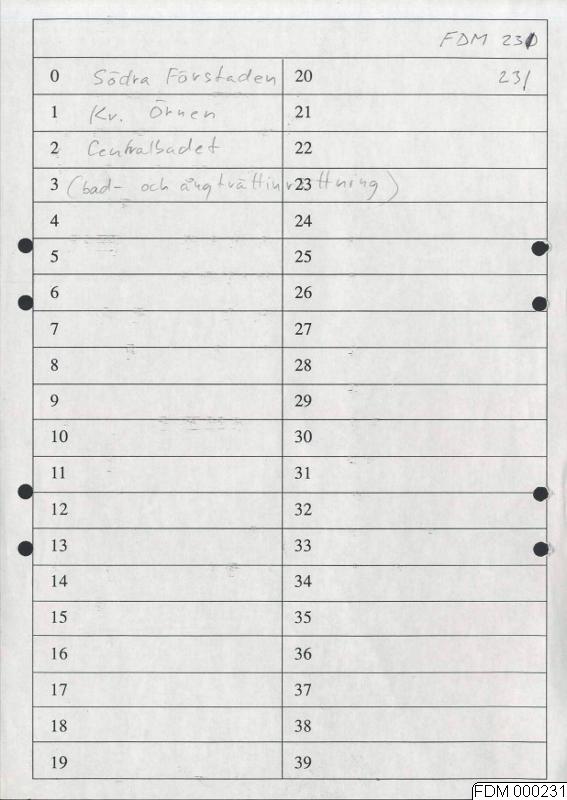 FDM 231
0 Södra Förstaden 20 231
1 Kv. Örnen 21
2 Centralbadet 22
3 (bad- och ångtvättinrättning) 23
4 24
5 25
6 26
7 27
8 28
9 29
10 30
11 31
12 32
13 33
14 34
15 35
16 36
17 37
18 38
19 39
FDM 000231